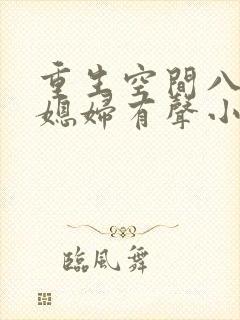 重生空間八
媳婦有聲小
臨風舞